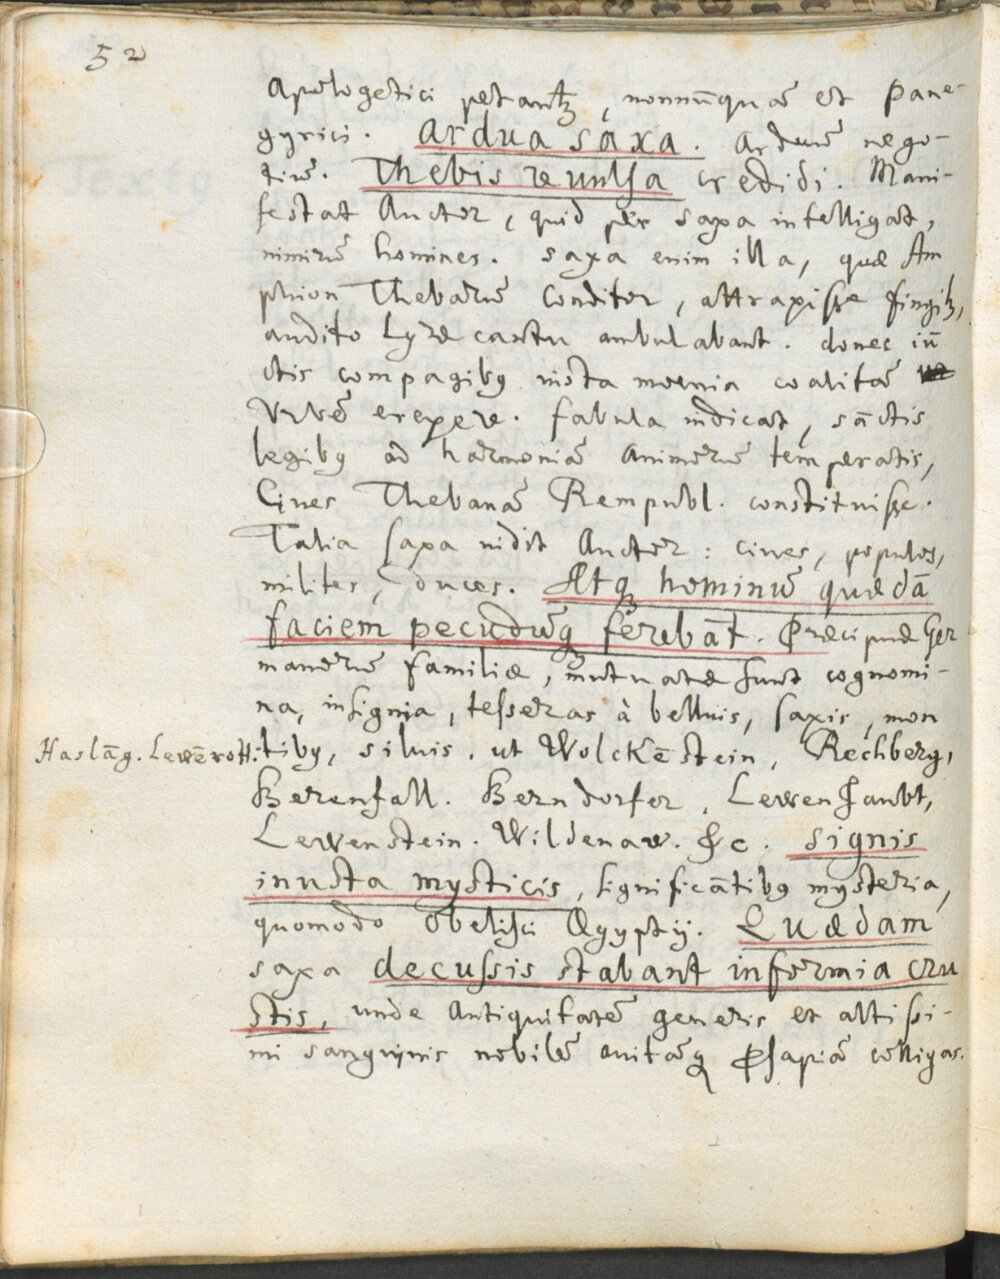 52
Apologetici petantꝫ, nonnūquã et Pane-
gyrici. Ardua saxa. Arduũ nego-
tiũ. Thebis reuulsa credidi. Mani-
festat Auctor, quid per saxa intelligat,
nimirũ homines. saxa enim illa, quæ Am
phion Thebarũ Conditor, attraxisse fingitꝫ,
audito Lyræ cantu ambulabant. donec iũ
ctis compagibꝰ iusta moenia coalitã
Vrbẽ erexere. fabula indicat, sãctis
legibꝰ ad harmoniã Animorũ temperatis,
Ciues Thebanã Rempubl. constituisse.
Talia saxa uidit Auctor: ciues, populos,
milites, duces. Atqꝫ hominũ quædã
faciem pecudũqꝫ ferebãt. Præcipuæ Ger
manorũ familiæ, mutuatæ sunt cognomi-
na, insignia, tesseras à belluis, saxis, mon
Haslãg. Lewẽrott: tibꝰ, siluis. ut Wolckẽstein, Rechberg,
Berenfall. Berndorfer, Lewenhaubt,
Lewenstein. Wildenaw. &c. signis
inusta mysticis, significãtibꝰ mysteria,
quomodo Obelisci Ægyptij. Quædam
saxa decussis stabant informia cru
stis, unde Antiquitatẽ generis et altissi-
mi sanguinis nobilẽ auitãqꝫ ꝓsapiã colligas.
Textꝰ